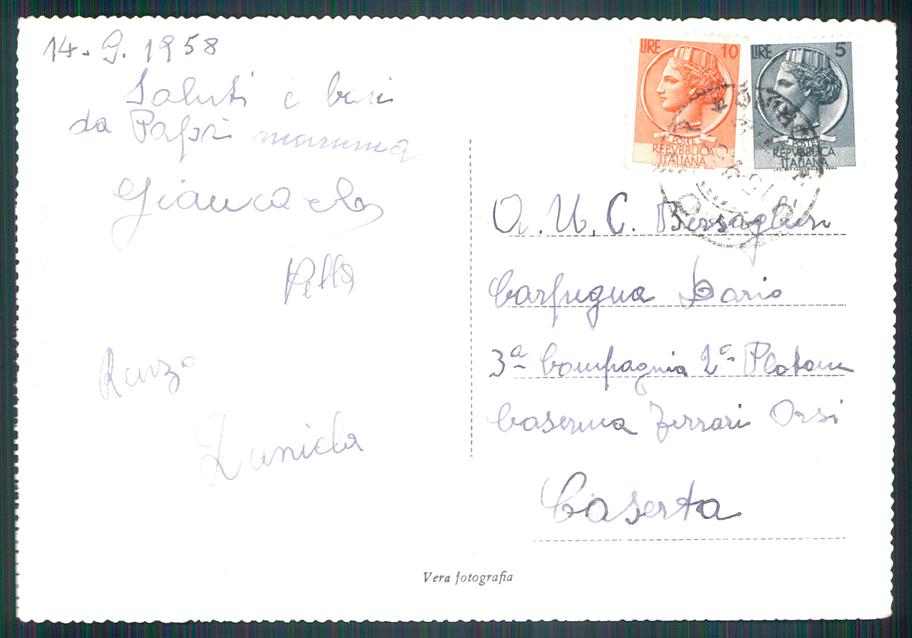 14-9.1958
Saluti e baci
da Papà mamma
Giancarlo
Renzo
Daniela
LIRE 10
POSTE
REPVBBLICA
ITALIANA
LIRE 5
POSTE
REPVBBLICA
ITALIANA
A.U.C. Bersagliere
Carpegna Dario
3ª Compagnia 2º Plotone
Caserma Ferrari Orsi
Caserta
Vera fotografia